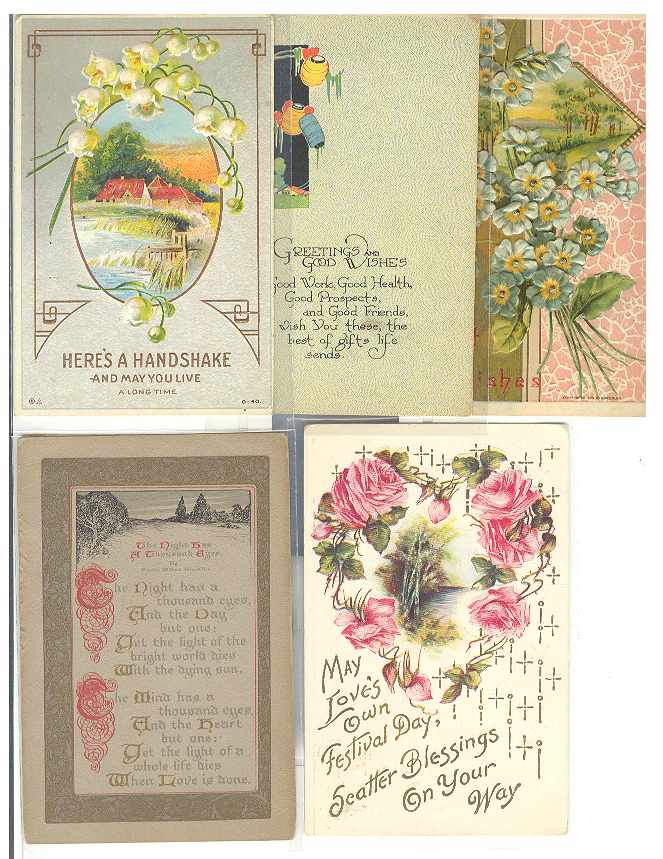 HERE'S A HANDSHAKE
AND MAY YOU LIVE
A LONG TIME
GREETINGS AND
GOOD WISHES
Good Work, Good Health,
Good Prospects,
and Good Friends,
wish You these, the
best of gifts life
sends.
ishes
The Night Has
A Thousand Eyes.
By
The Night has a
thousand eyes,
And the Day
but one:
Yet the light of the
bright world dies
With the dying sun.
The Mind has a
thousand eyes,
And the Heart
but one:
Yet the light of a
whole life dies
When Love is done.
MAY
LOVE'S
OWN
Festival Day,
Scatter Blessings
On Your
Way